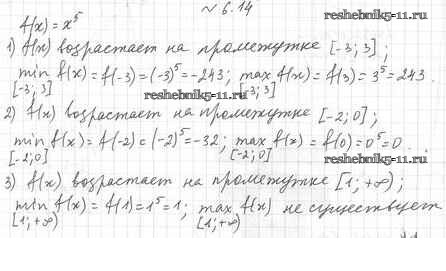 № 6.14
reshebnik5-11.ru
f(x) = x⁵
1) f(x) возрастает на промежутке [-3; 3];
min f(x) = f(-3) = (-3)⁵ = -243; max f(x) = f(3) = 3⁵ = 243.
[-3; 3] [-3; 3]
reshebnik5-11.ru
2) f(x) возрастает на промежутке [-2; 0];
min f(x) = f(-2) = (-2)⁵ = -32; max f(x) = f(0) = 0⁵ = 0.
[-2; 0] [-2; 0]
reshebnik5-11.ru
3) f(x) возрастает на промежутке [1; +∞);
min f(x) = f(1) = 1⁵ = 1; max f(x) не существует.
[1; +∞) [1; +∞)